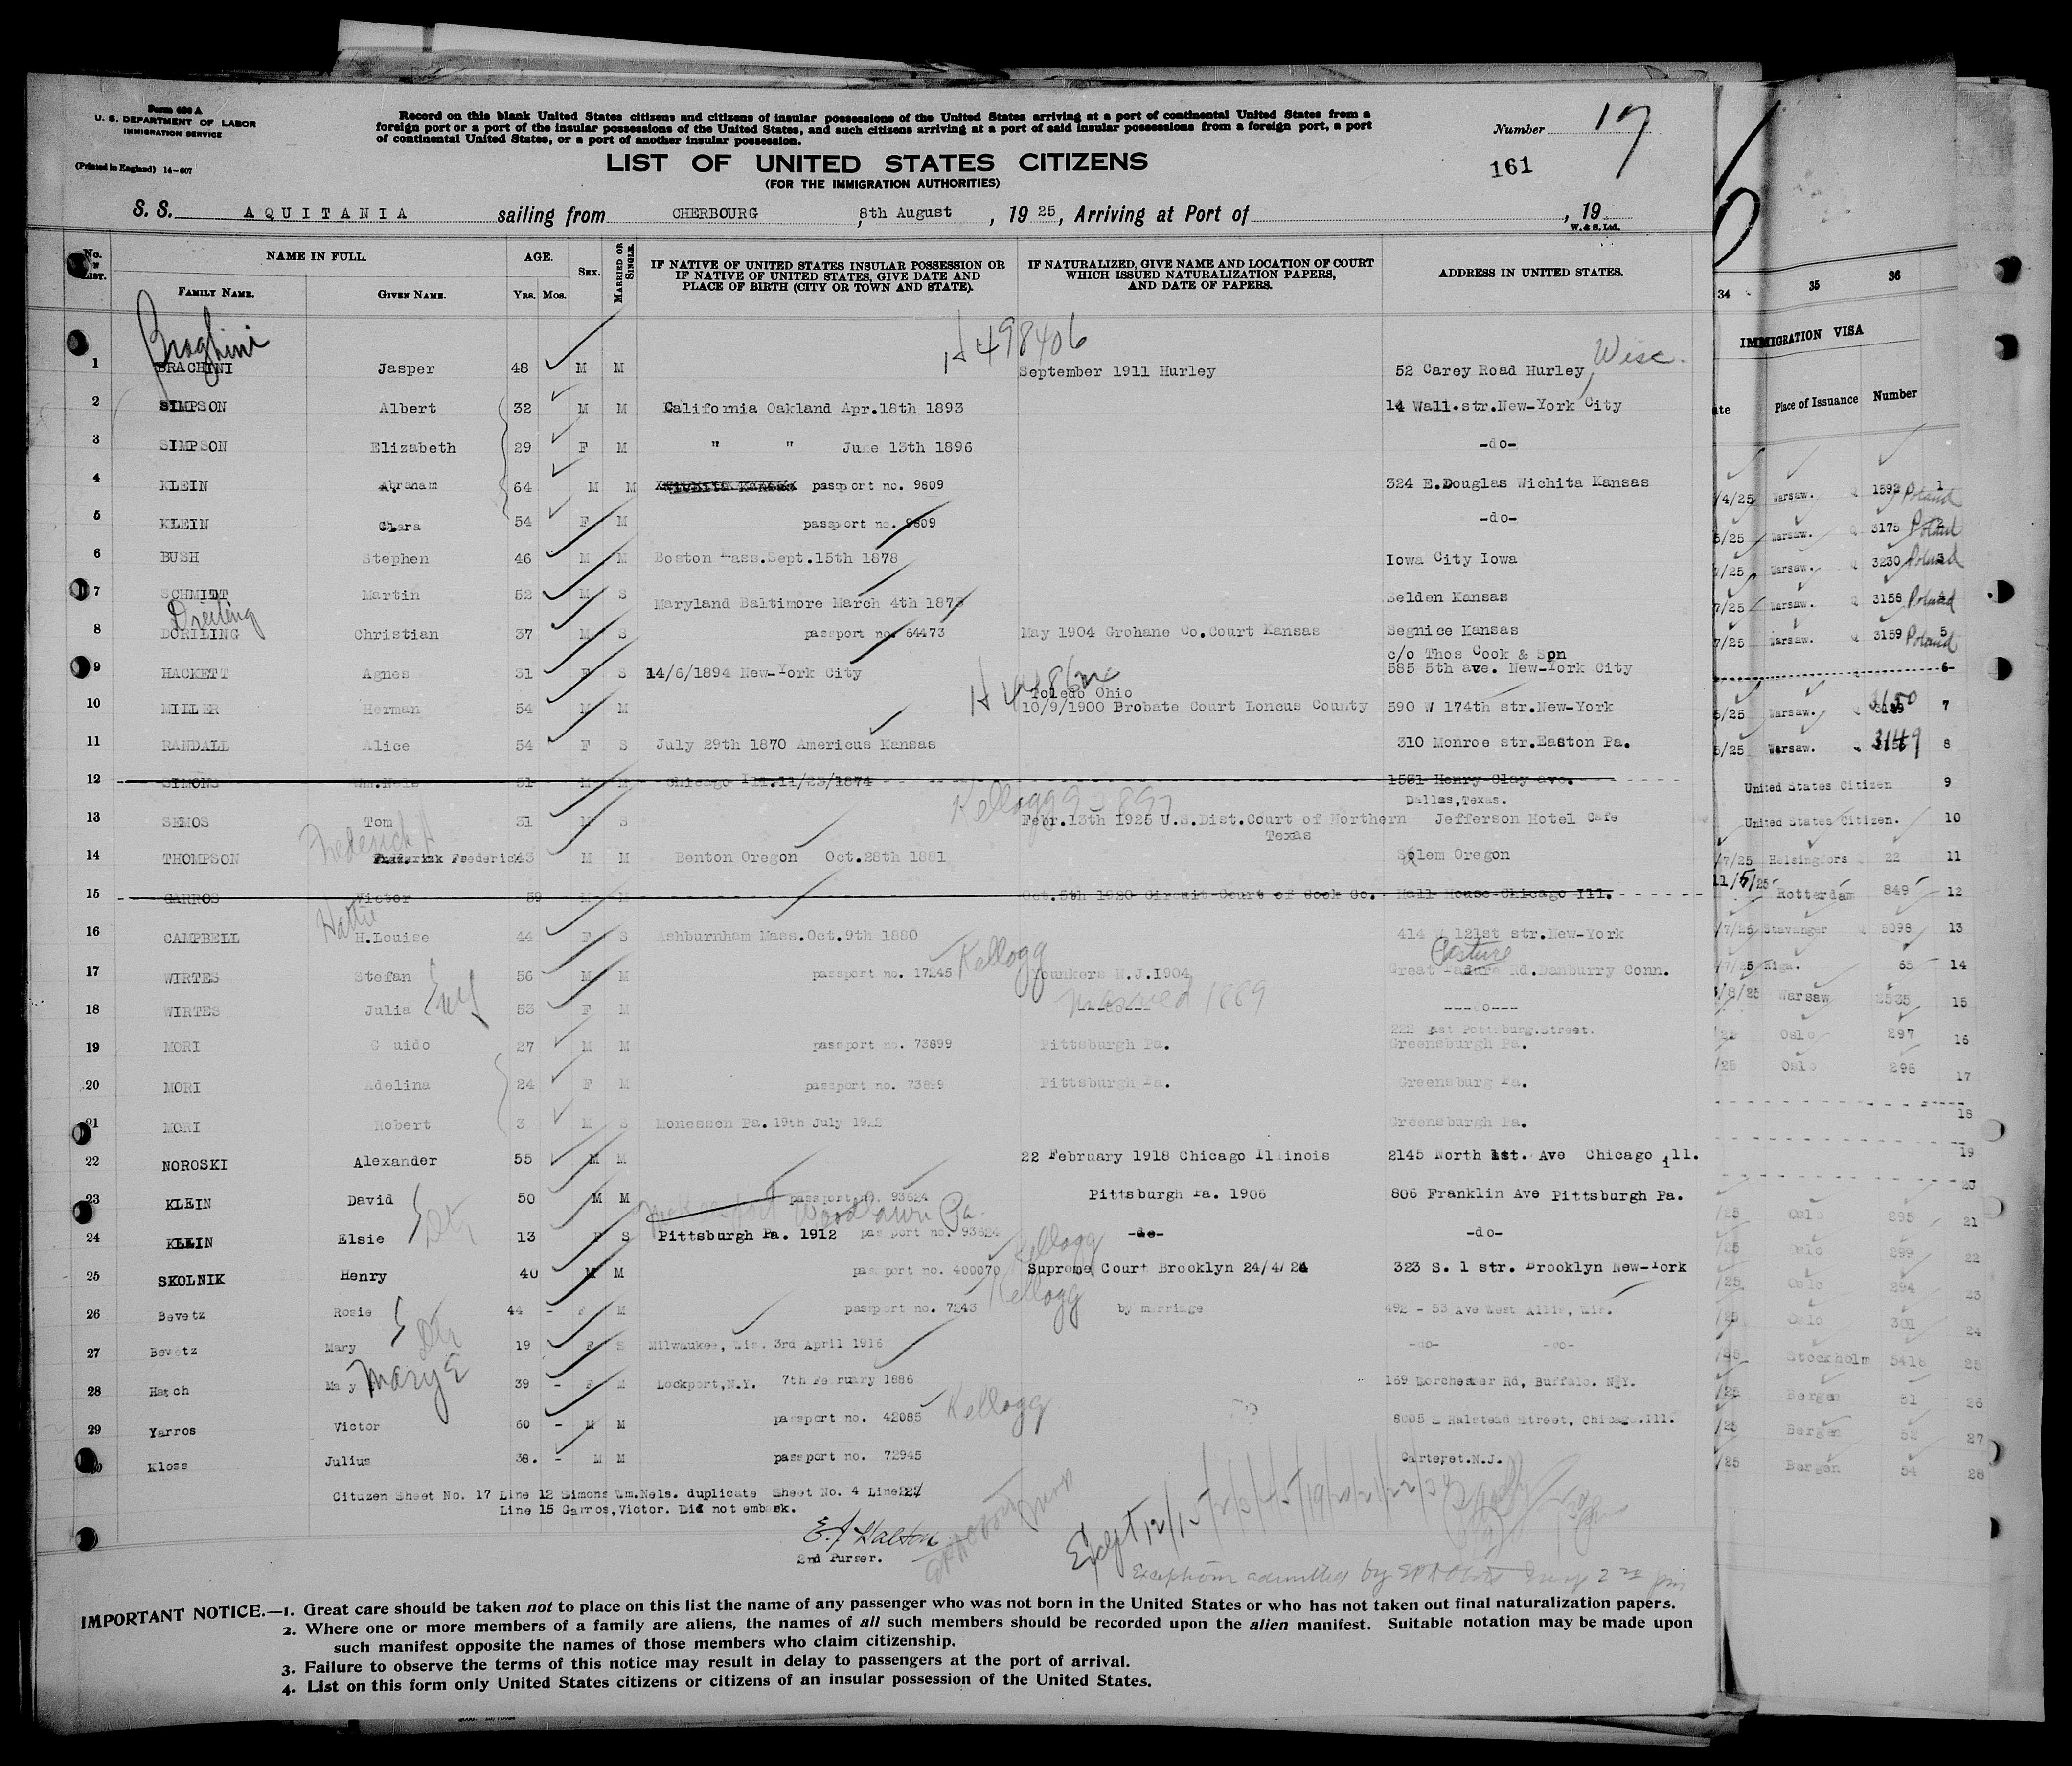 Form 630 A
U. S. DEPARTMENT OF LABOR
IMMIGRATION SERVICE
(Printed in England) 14-607
Record on this blank United States citizens and citizens of insular possessions of the United States arriving at a port of continental United States from a
foreign port or a port of the insular possessions of the United States, and such citizens arriving at a port of said insular possessions from a foreign port, a port
of continental United States, or a port of another insular possession.
Number 17
LIST OF UNITED STATES CITIZENS
161
(FOR THE IMMIGRATION AUTHORITIES)
S. S. AQUITANIA sailing from CHERBOURG, 8th August, 19 25, Arriving at Port of , 19
W. & S. Ltd.
No. LIST. NAME IN FULL. AGE. SEX. MARRIED OR SINGLE. IF NATIVE OF UNITED STATES INSULAR POSSESSION OR IF NATIVE OF UNITED STATES, GIVE DATE AND PLACE OF BIRTH (CITY OR TOWN AND STATE). IF NATURALIZED, GIVE NAME AND LOCATION OF COURT WHICH ISSUED NATURALIZATION PAPERS, AND DATE OF PAPERS. ADDRESS IN UNITED STATES.
FAMILY NAME. GIVEN NAME. YRS. MOS.
Braghini H 498406 Wisc.
1 BRACHINI Jasper 48 M M September 1911 Hurley 52 Carey Road Hurley
2 SIMPSON Albert 32 M M California Oakland Apr.18th 1893 14 Wall.str.New-York City
3 SIMPSON Elizabeth 29 F M " " June 13th 1896 -do-
4 KLEIN Abraham 64 M M passport no. 9809 324 E.Douglas Wichita Kansas
5 KLEIN Clara 54 F M passport no. 9809 -do-
6 BUSH Stephen 46 M M Boston Mass.Sept.15th 1878 Iowa City Iowa
7 SCHMIDT Martin 52 M S Maryland Baltimore March 4th 1873 Selden Kansas
Dreiling
8 DORILING Christian 37 M S passport no. 64473 May 1904 Grohane Co.Court Kansas Segnice Kansas
c/o Thos Cook & Son
9 HACKETT Agnes 31 F S 14/6/1894 New-York City 585 5th ave. New-York City
Toledo Ohio
10 MILLER Herman 54 M M 10/9/1900 Brobate Court Loncus County 590 W 174th str.New-York
11 RANDALL Alice 54 F S July 29th 1870 Americus Kansas 310 Monroe str.Easton Pa.
12 SIMONS Wm.Nels 51 M M Chicago Ill.11/23/1874 1531 Henry Clay ave.
Kellogg Dallas,Texas.
13 SEMOS Tom 31 M S Febr.13th 1925 U.S.Dist.Court of Northern Texas Jefferson Hotel Cafe
Frederick A
14 THOMPSON Frederick 43 M M Benton Oregon Oct.28th 1881 Solem Oregon
15 GARROS Victor 59 M M Oct.5th 1920 Circuit Court of Cook Co. Hall House Chicago Ill.
Hattie
16 CAMPBELL H.Louise 44 F S Ashburnham Mass.Oct.9th 1880 414 W 121st str.New-York
Kellogg Pasture
17 WIRTES Stefan 56 M M passport no. 17245 Younkers N.J.1904 Great Padure Rd.Danburry Conn.
wf married 1889
18 WIRTES Julia 53 F M ---do--- ----do----
222 East Pottsburg.Street.
19 MORI Guido 27 M M passport no. 73899 Pittsburgh Pa. Greensburgh Pa.
20 MORI Adelina 24 F M passport no. 73899 Pittsburgh Pa. Greensburg Pa.
21 MORI Robert 3 M S Monessen Pa. 19th July 1922 Greensburgh Pa.
22 NOROSKI Alexander 55 M M 22 February 1918 Chicago Illinois 2145 North 1st. Ave Chicago ill.
23 KLEIN David 50 M M passport no. 93624 Pittsburgh Pa. 1906 806 Franklin Ave Pittsburgh Pa.
Dtr Woodlawn Pa.
24 KLEIN Elsie 13 F S Pittsburgh Pa. 1912 passport no. 93624 -do- -do-
Kellogg
25 SKOLNIK Henry 40 M M passport no. 400070 Supreme Court Brooklyn 24/4/24 323 S. 1 str. Brooklyn New-York
Kellogg
26 Bevetz Rosie 44 - F M passport no. 7243 by marriage 492 - 53 Ave West Allis, Wis.
Dtr
27 Bevetz Mary 19 F S Milwaukee, Wis. 3rd April 1916 -do- -do-
Mary E
28 Hatch Mary 39 - F M Lockport,N.Y. 7th February 1886 169 Dorchester Rd, Buffalo. N.Y.
Kellogg
29 Yarros Victor 60 - M M passport no. 42085 8005 S Halstead Street, Chicago.Ill.
30 Kloss Julius 38. - M M passport no. 72945 Carteret.N.J.
Citizen Sheet No. 17 Line 12 Simons Wm.Nels. duplicate Sheet No. 4 Line 22
Line 15 Garros,Victor. Did not embark.
2nd Purser.
Except 12/15
Exceptions admitted by
IMPORTANT NOTICE.—1. Great care should be taken not to place on this list the name of any passenger who was not born in the United States or who has not taken out final naturalization papers.
2. Where one or more members of a family are aliens, the names of all such members should be recorded upon the alien manifest. Suitable notation may be made upon
such manifest opposite the names of those members who claim citizenship.
3. Failure to observe the terms of this notice may result in delay to passengers at the port of arrival.
4. List on this form only United States citizens or citizens of an insular possession of the United States.
34 35 36
IMMIGRATION VISA
Place of Issuance Number
/4/25 Warsaw. Q 1592 Poland 1
5/25 Warsaw. Q 3175 Poland 2
/25 Warsaw. Q 3230 Poland 3
7/25 Warsaw. Q 3158 Poland 4
7/25 Warsaw. Q 3159 Poland 5
6
5/25 Warsaw. Q 3150 7
5/25 Warsaw. Q 3149 8
United States Citizen 9
United States Citizen. 10
/7/25 Helsingfors 22 11
11/5/25 Rotterdam 849 12
/7/25 Stavanger Q 5098 13
/7/25 Riga. 65 14
/8/25 Warsaw 2535 15
Oslo 297 16
/25 Oslo 296 17
18
19
20
/25 Oslo 295 21
/25 Oslo 299 22
/25 Oslo 294 23
/25 Oslo 301 24
/25 Stockholm 5418 25
/25 Bergen 51 26
/25 Bergen 52 27
/25 Bergen 54 28